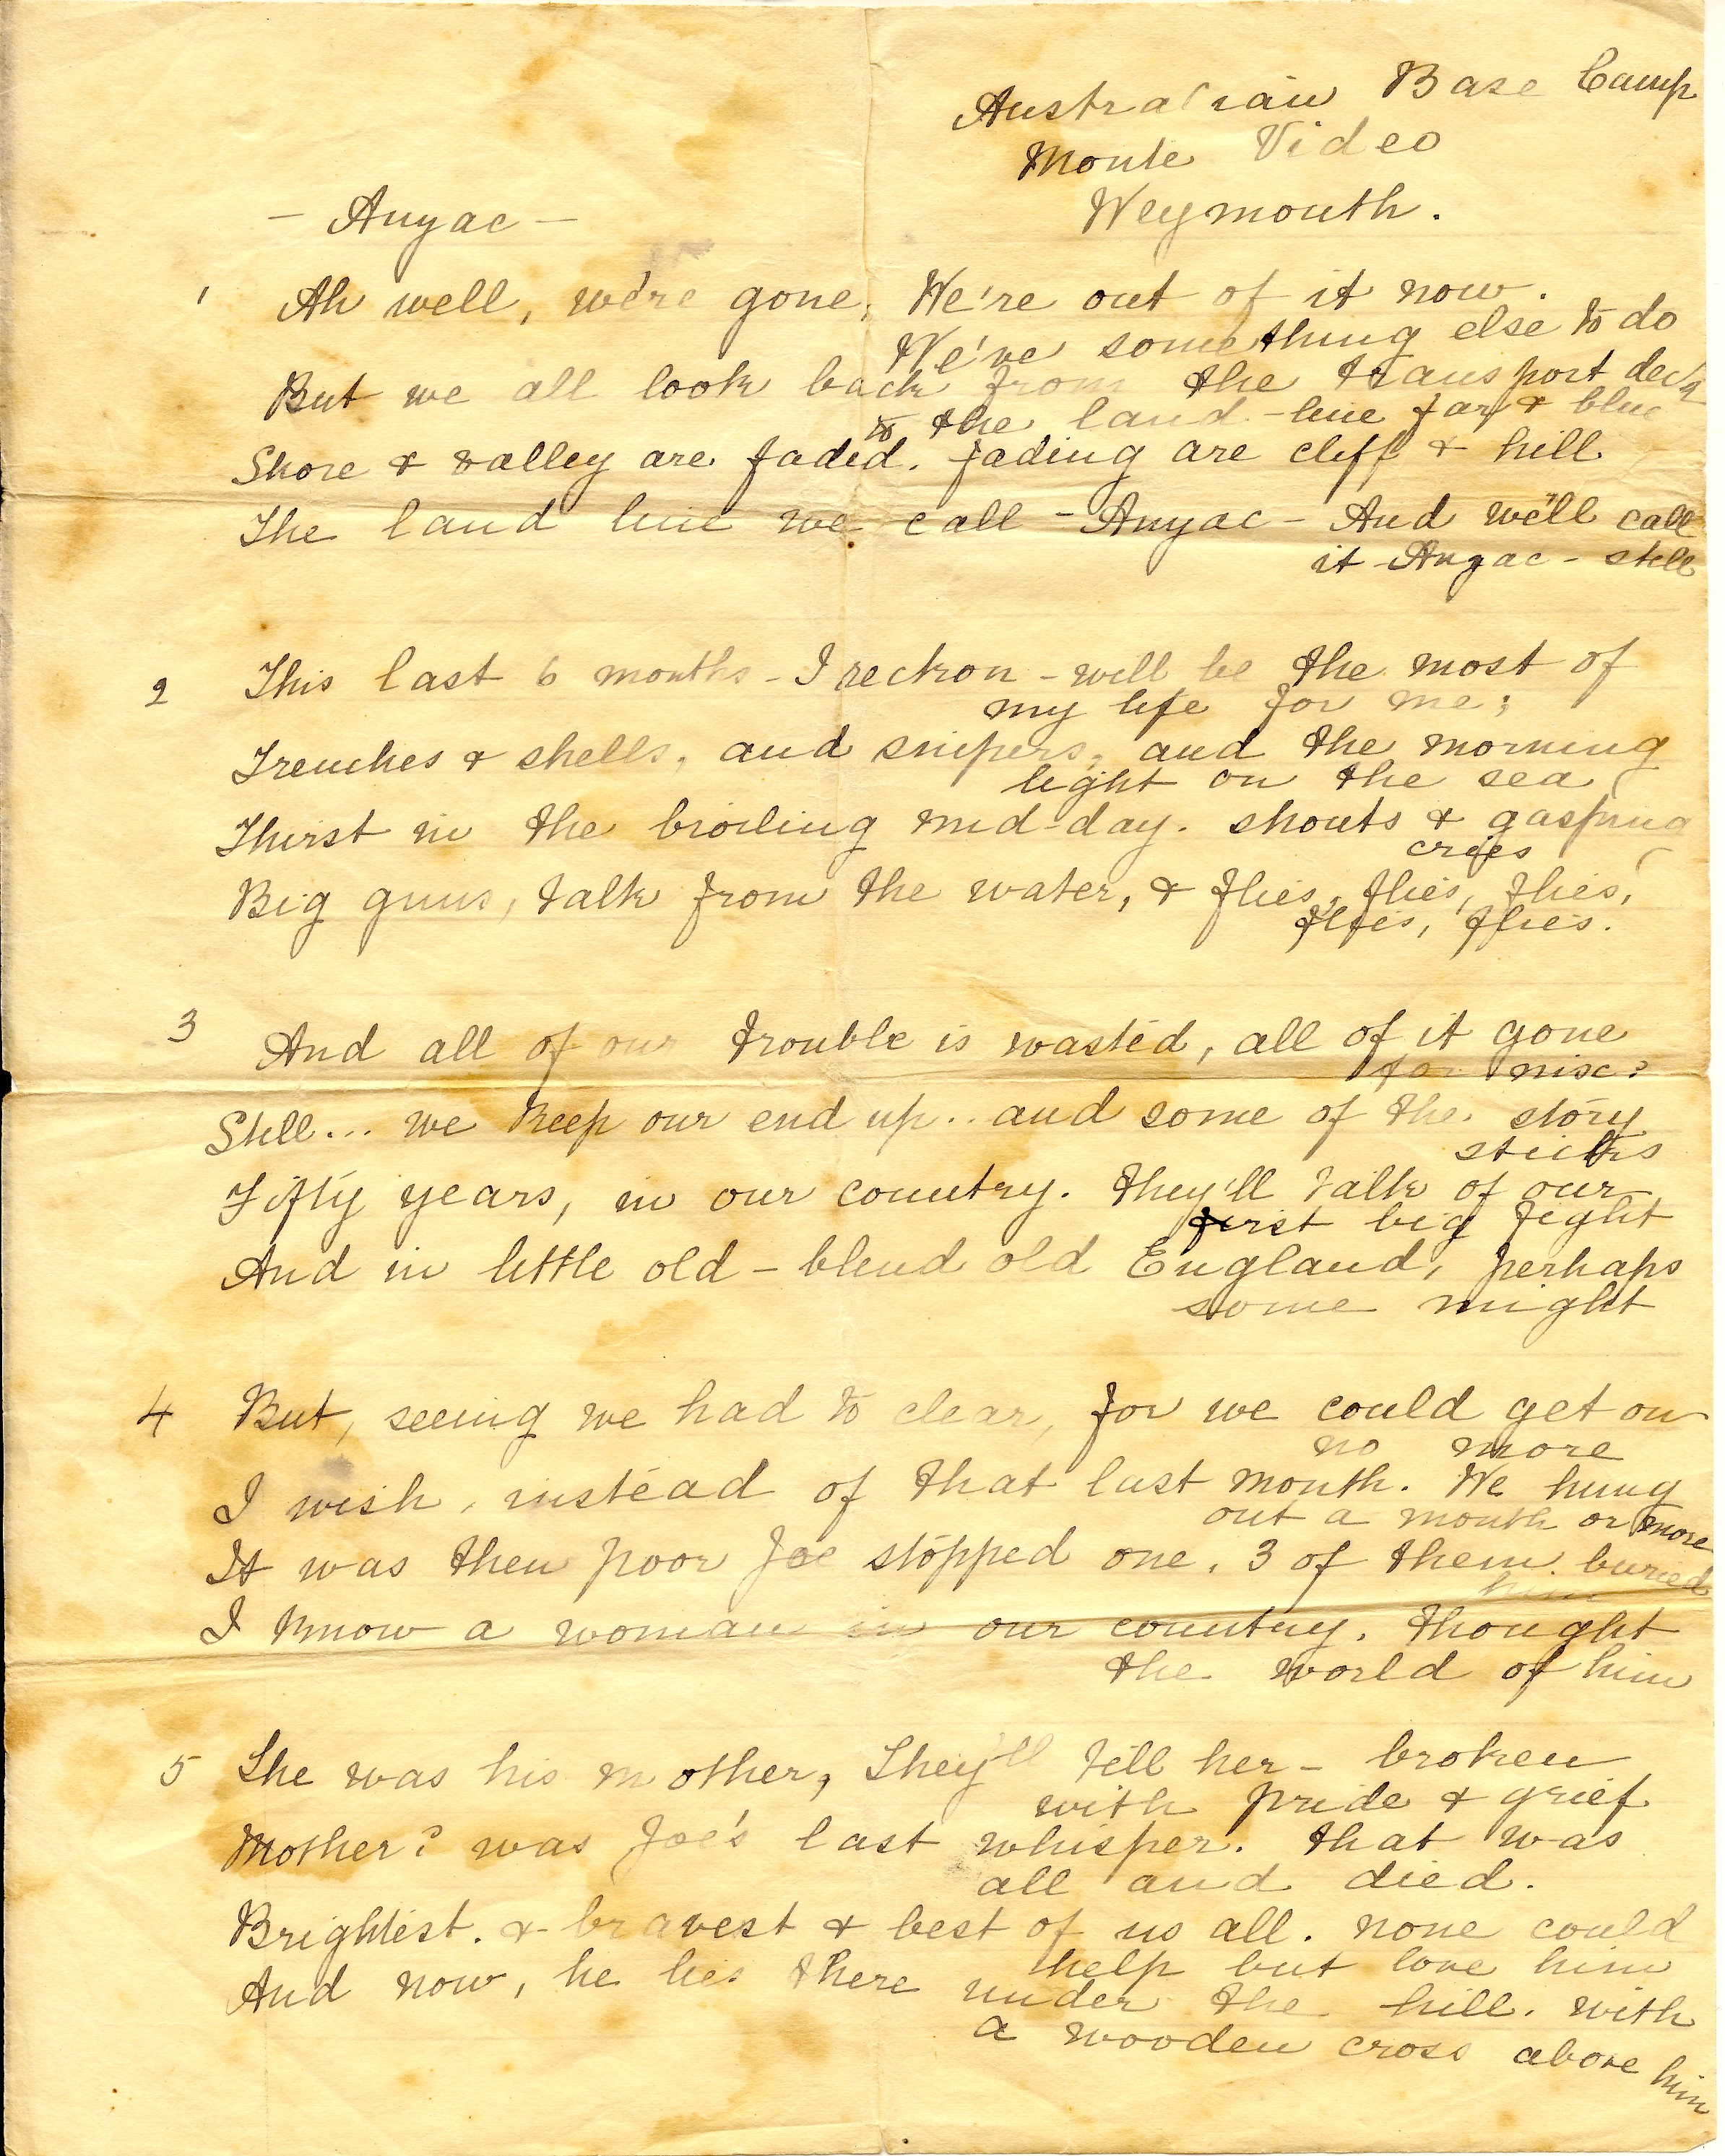 Australian Base Camp
Monte Video
Weymouth.
- Anzac -
1 Ah well, we're gone, We're out of it now.
We've something else to do
But we all look back from the transport deck
to the land-line far & blue
Shore & valley are faded. fading are cliff & hill
The land line we call - Anzac - And we'll call
it - Anzac - still
2 This last 6 months - I reckon - will be the most of
my life for me;
Trenches & shells, and snipers, and the morning
light on the sea
Thirst in the broiling mid-day. shouts & gasping
cries
Big guns, talk from the water, & flies, flies, flies,
flies, flies.
3 And all of our trouble is wasted, all of it gone
for nix?
Still... we keep our end up.. and some of the story
sticks
Fifty years, in our country. they'll talk of our
first big fight
And in little old - blind old England, perhaps
some might
4 But, seeing we had to clear, for we could get on
no more
I wish, instead of that last month. We hung
out a month or more
It was then poor Joe stopped one. 3 of them buried
him
I know a woman in our country. thought
the world of him
5 She was his mother, They'll tell her - broken
with pride & grief
Mother? was Joe's last whisper. that was
all and died.
Brightest. & bravest & best of us all. none could
help but love him
And now, he lies there under the hill. with
a wooden cross above him